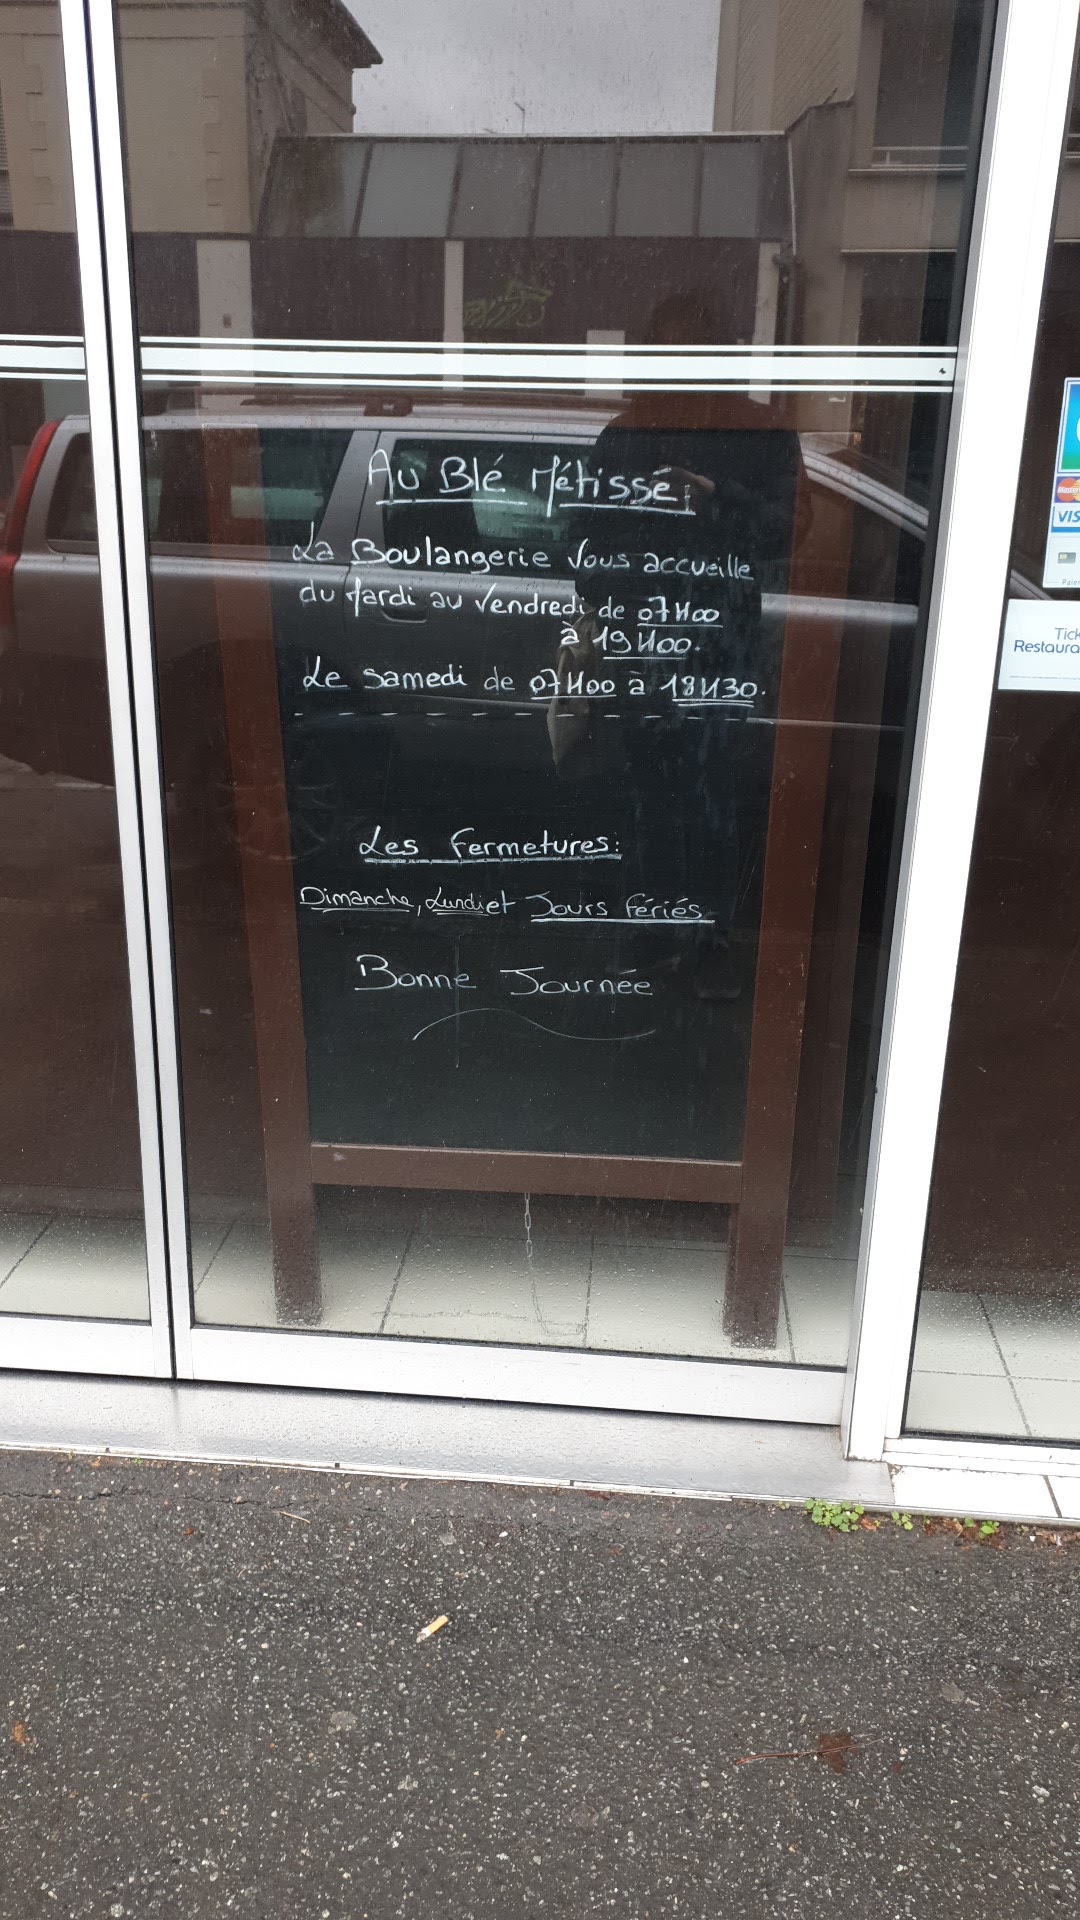 Au Blé Métissé
La Boulangerie Vous accueille
du Mardi au Vendredi de 07H00
à 19H00.
Le samedi de 07H00 à 18H30.
Les Fermetures:
Dimanche, Lundi et Jours fériés
Bonne Journée
VIS
Tick
Restaura